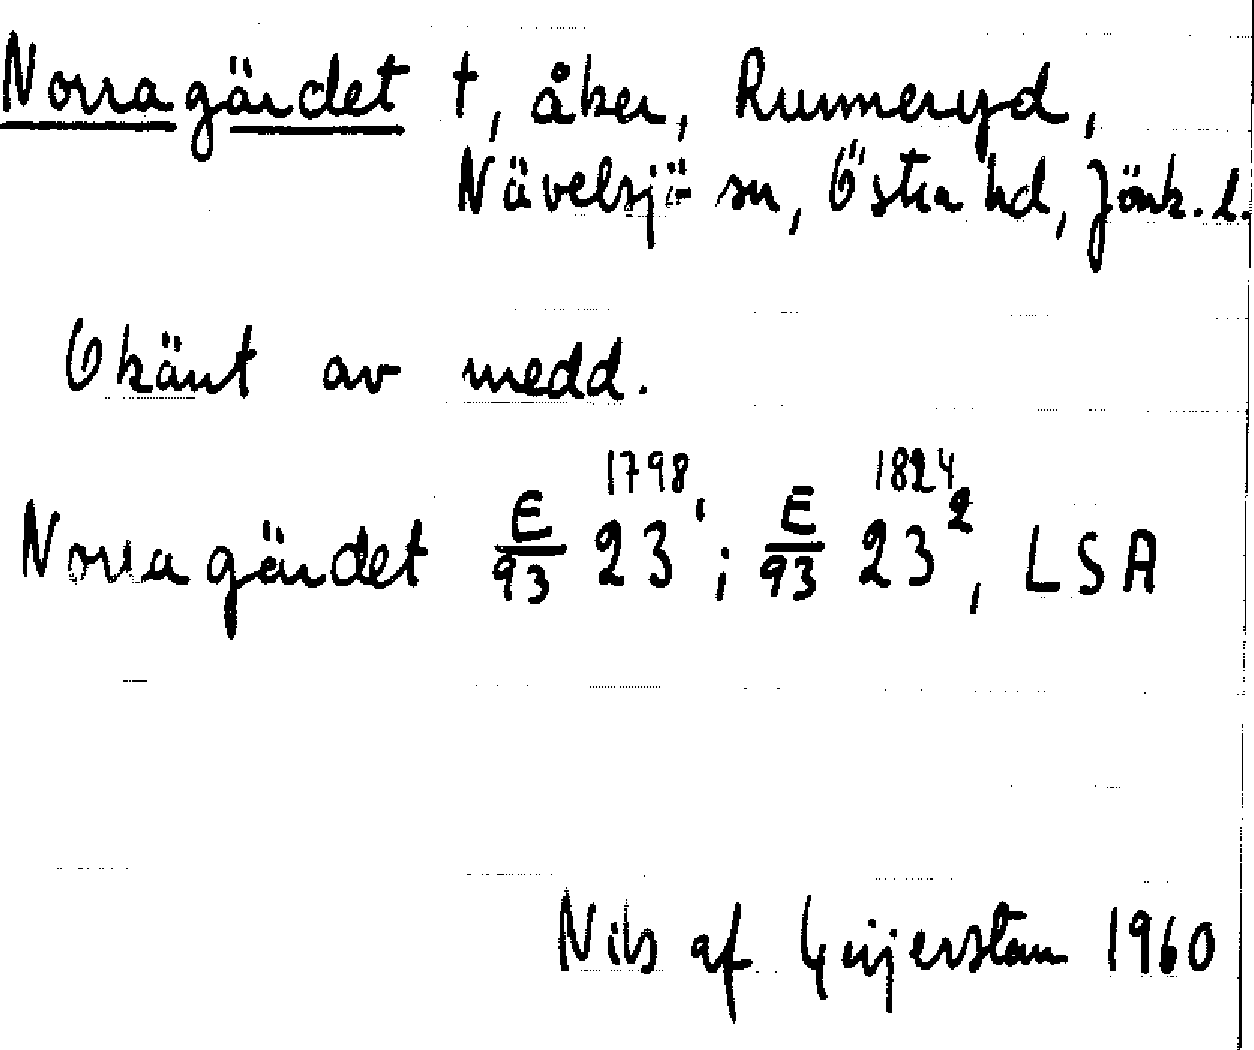 Norragärdet †, åker, Runneryd,
Nävelsjö sn, Östra hd, Jönk. l.
Okänt av medd.
1798 1824
Norragärdet E/93 23¹; E/93 23², LSA
Nils af Geijerstam 1960